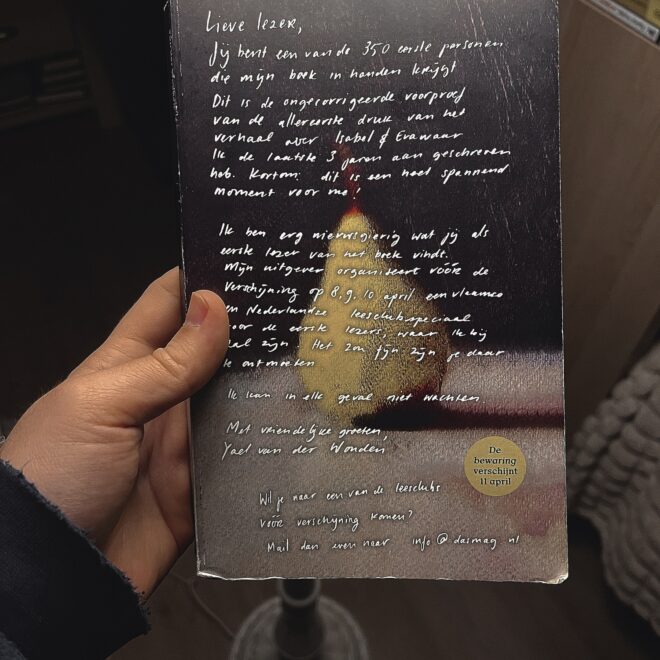 Lieve lezer,
Jij bent een van de 350 eerste personen
die mijn boek in handen krijgt
Dit is de ongecorrigeerde voorproef
van de allereerste druk van het
verhaal over Isabel & Eva waar
Ik de laatste 3 jaren aan geschreven
heb. Kortom: dit is een heel spannend
moment voor me!
Ik ben erg nieuwsgierig wat jij als
eerste lezer van het boek vindt.
Mijn uitgever organiseert vóór de
verschijning op 8, 9, 10 april een vlaamse
en Nederlandse leesclubspeciaal
voor de eerste lezers, waar ik bij
zal zijn. Het zou fijn zijn je daar
te ontmoeten
Ik kan in elk geval niet wachten
Met vriendelijke groeten,
Yael van der Wouden
De
bewaring
verschijnt
11 april
Wil je naar een van de leesclubs
vóór verschijning komen?
Mail dan even naar info@dasmag.nl